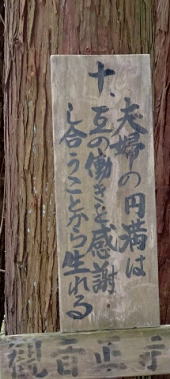 十、夫婦の円満は
互の働きを感謝
し合うことから生れる
観音正寺